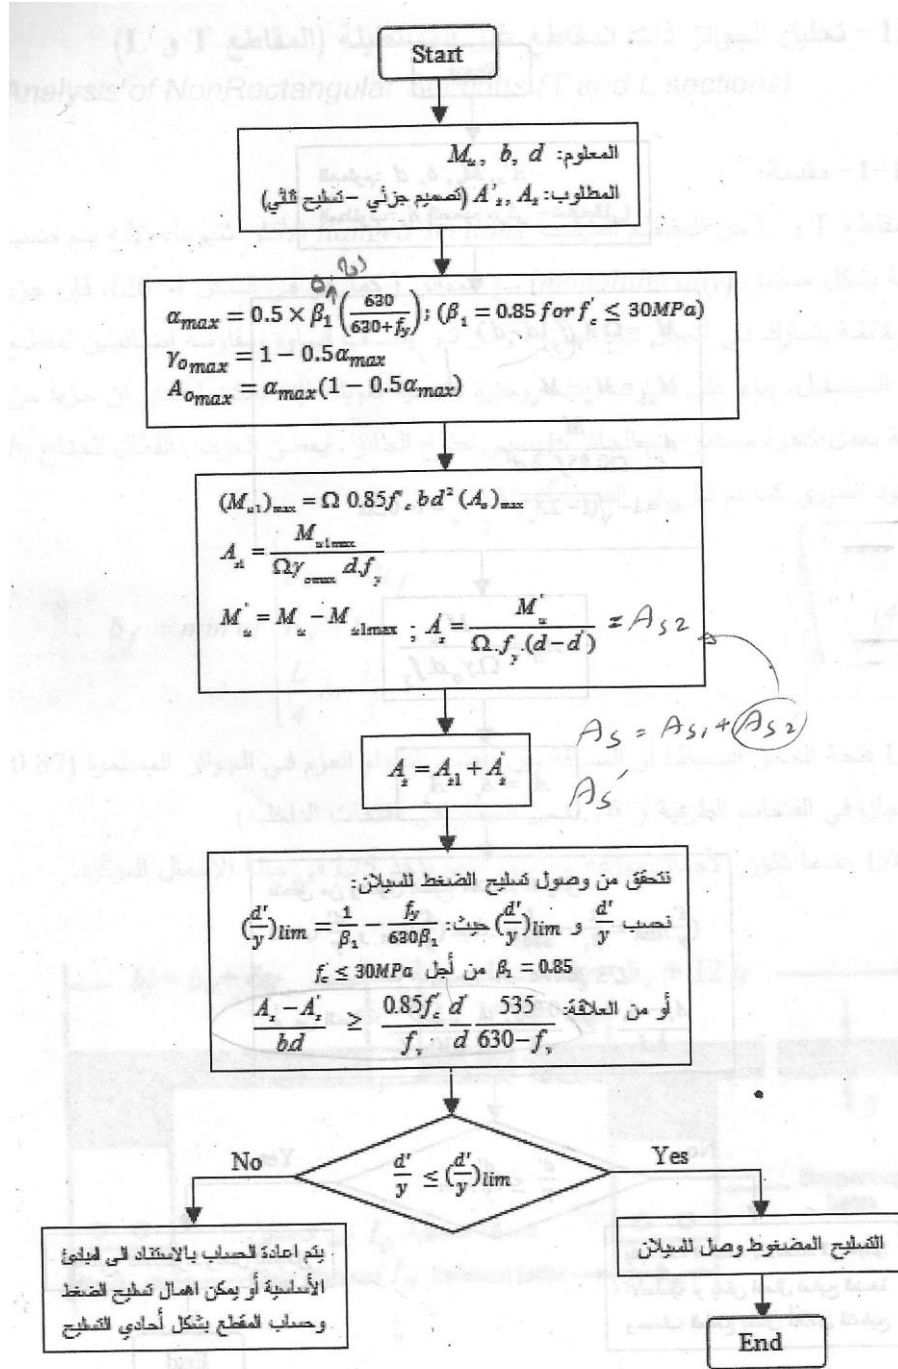 Start
المعلوم: M_u, b, d
المطلوب: A'_s, A_s (تصميم جزئي - تسليح ثنائي)
α_max = 0.5 × β_1 (630 / 630+f_y) ; (β_1 = 0.85 for f'_c ≤ 30MPa)
γ_o max = 1 − 0.5α_max
A_o max = α_max(1 − 0.5α_max)
(M_u1)_max = Ω 0.85f'_c bd² (A_o)_max
A_s1 = M_u1max / Ωγ_omax d.f_y
M'_u = M_u − M_u1max ; A'_s = M'_u / Ω.f_y.(d−d') = A_S2
A_S = A_S1 + A_S2
A_s = A_s1 + A'_s
A_S'
نتحقق من وصول تسليح الضغط للسيلان:
نحسب d'/y و (d'/y)lim حيث: (d'/y)lim = 1/β_1 − f_y/630β_1
β_1 = 0.85 من أجل f'_c ≤ 30MPa
أو من العلاقة: A_s − A'_s / bd ≥ 0.85f'_c / f_y d'/d 535 / 630−f_y
d'/y ≤ (d'/y)lim
No
Yes
يتم اعادة الحساب بالاستناد الى المبادئ
الأساسية أو يمكن اهمال تسليح الضغط
وحساب المقطع بشكل أحادي التسليح
التسليح المضغوط وصل للسيلان
End